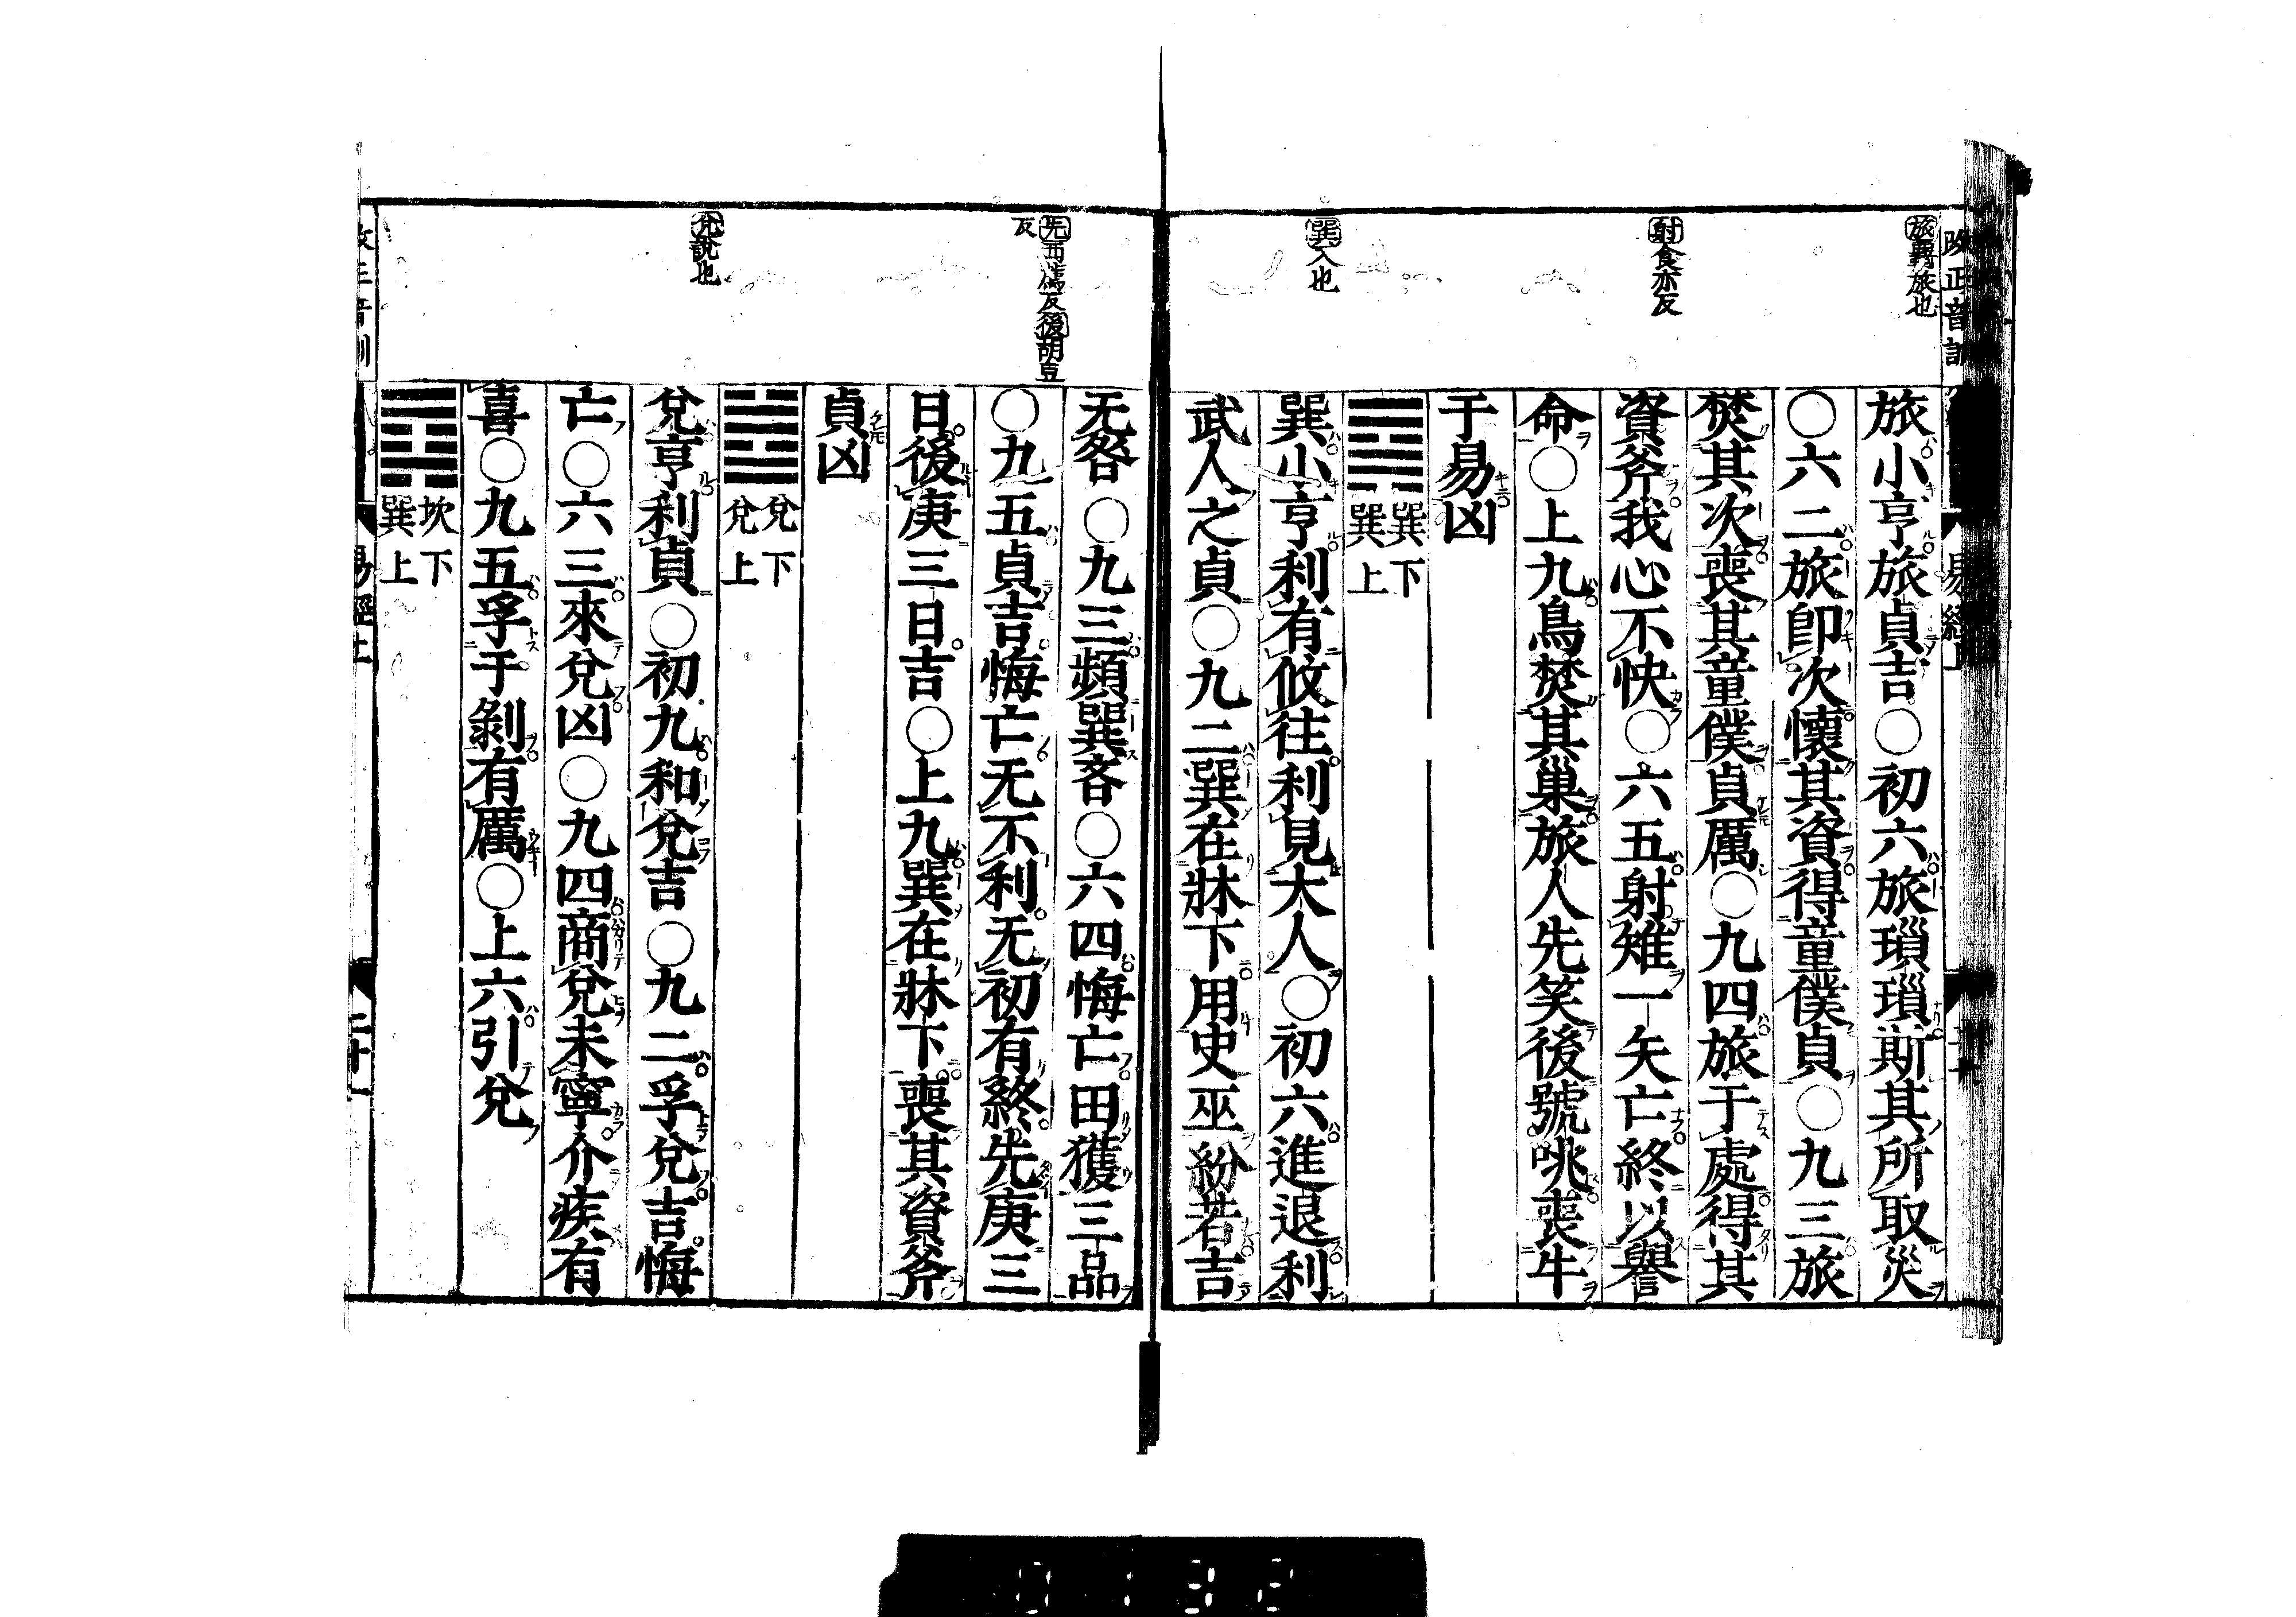 旅羇旅也
射食亦反
巽入也
旅小亨旅貞吉○初六旅瑣瑣斯其所取災
○六二旅卽次懷其資得童僕貞○九三旅
焚其次喪其童僕貞厲○九四旅于處得其
資斧我心不快○六五射雉一矢亡終以譽
命○上九鳥焚其巢旅人先笑後號咷喪牛
于易凶
巽下
巽上
巽小亨利有攸往利見大人○初六進退利
武人之貞○九二巽在牀下用史巫紛若吉
先西薦反後胡豆
反
兌說也
无咎○九三頻巽吝○六四悔亡田獲三品
○九五貞吉悔亡无不利无初有終先庚三
日後庚三日吉○上九巽在牀下喪其資斧
貞凶
兌下
兌上
兌亨利貞○初九和兌吉○九二孚兌吉悔
亡○六三來兌凶○九四商兌未寧介疾有
喜○九五孚于剝有厲○上六引兌
坎下
巽上